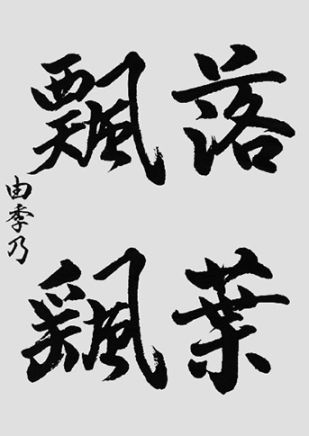 落葉
飄颻
由季乃